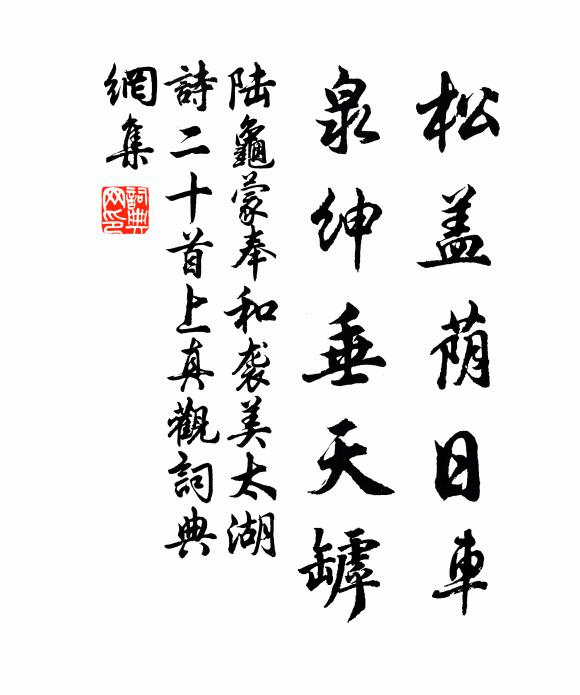 松盖荫日車
泉紳垂天罅
陆龜蒙奉和袭美太湖
詩二十首上真觀詞典
網集
詞典網印